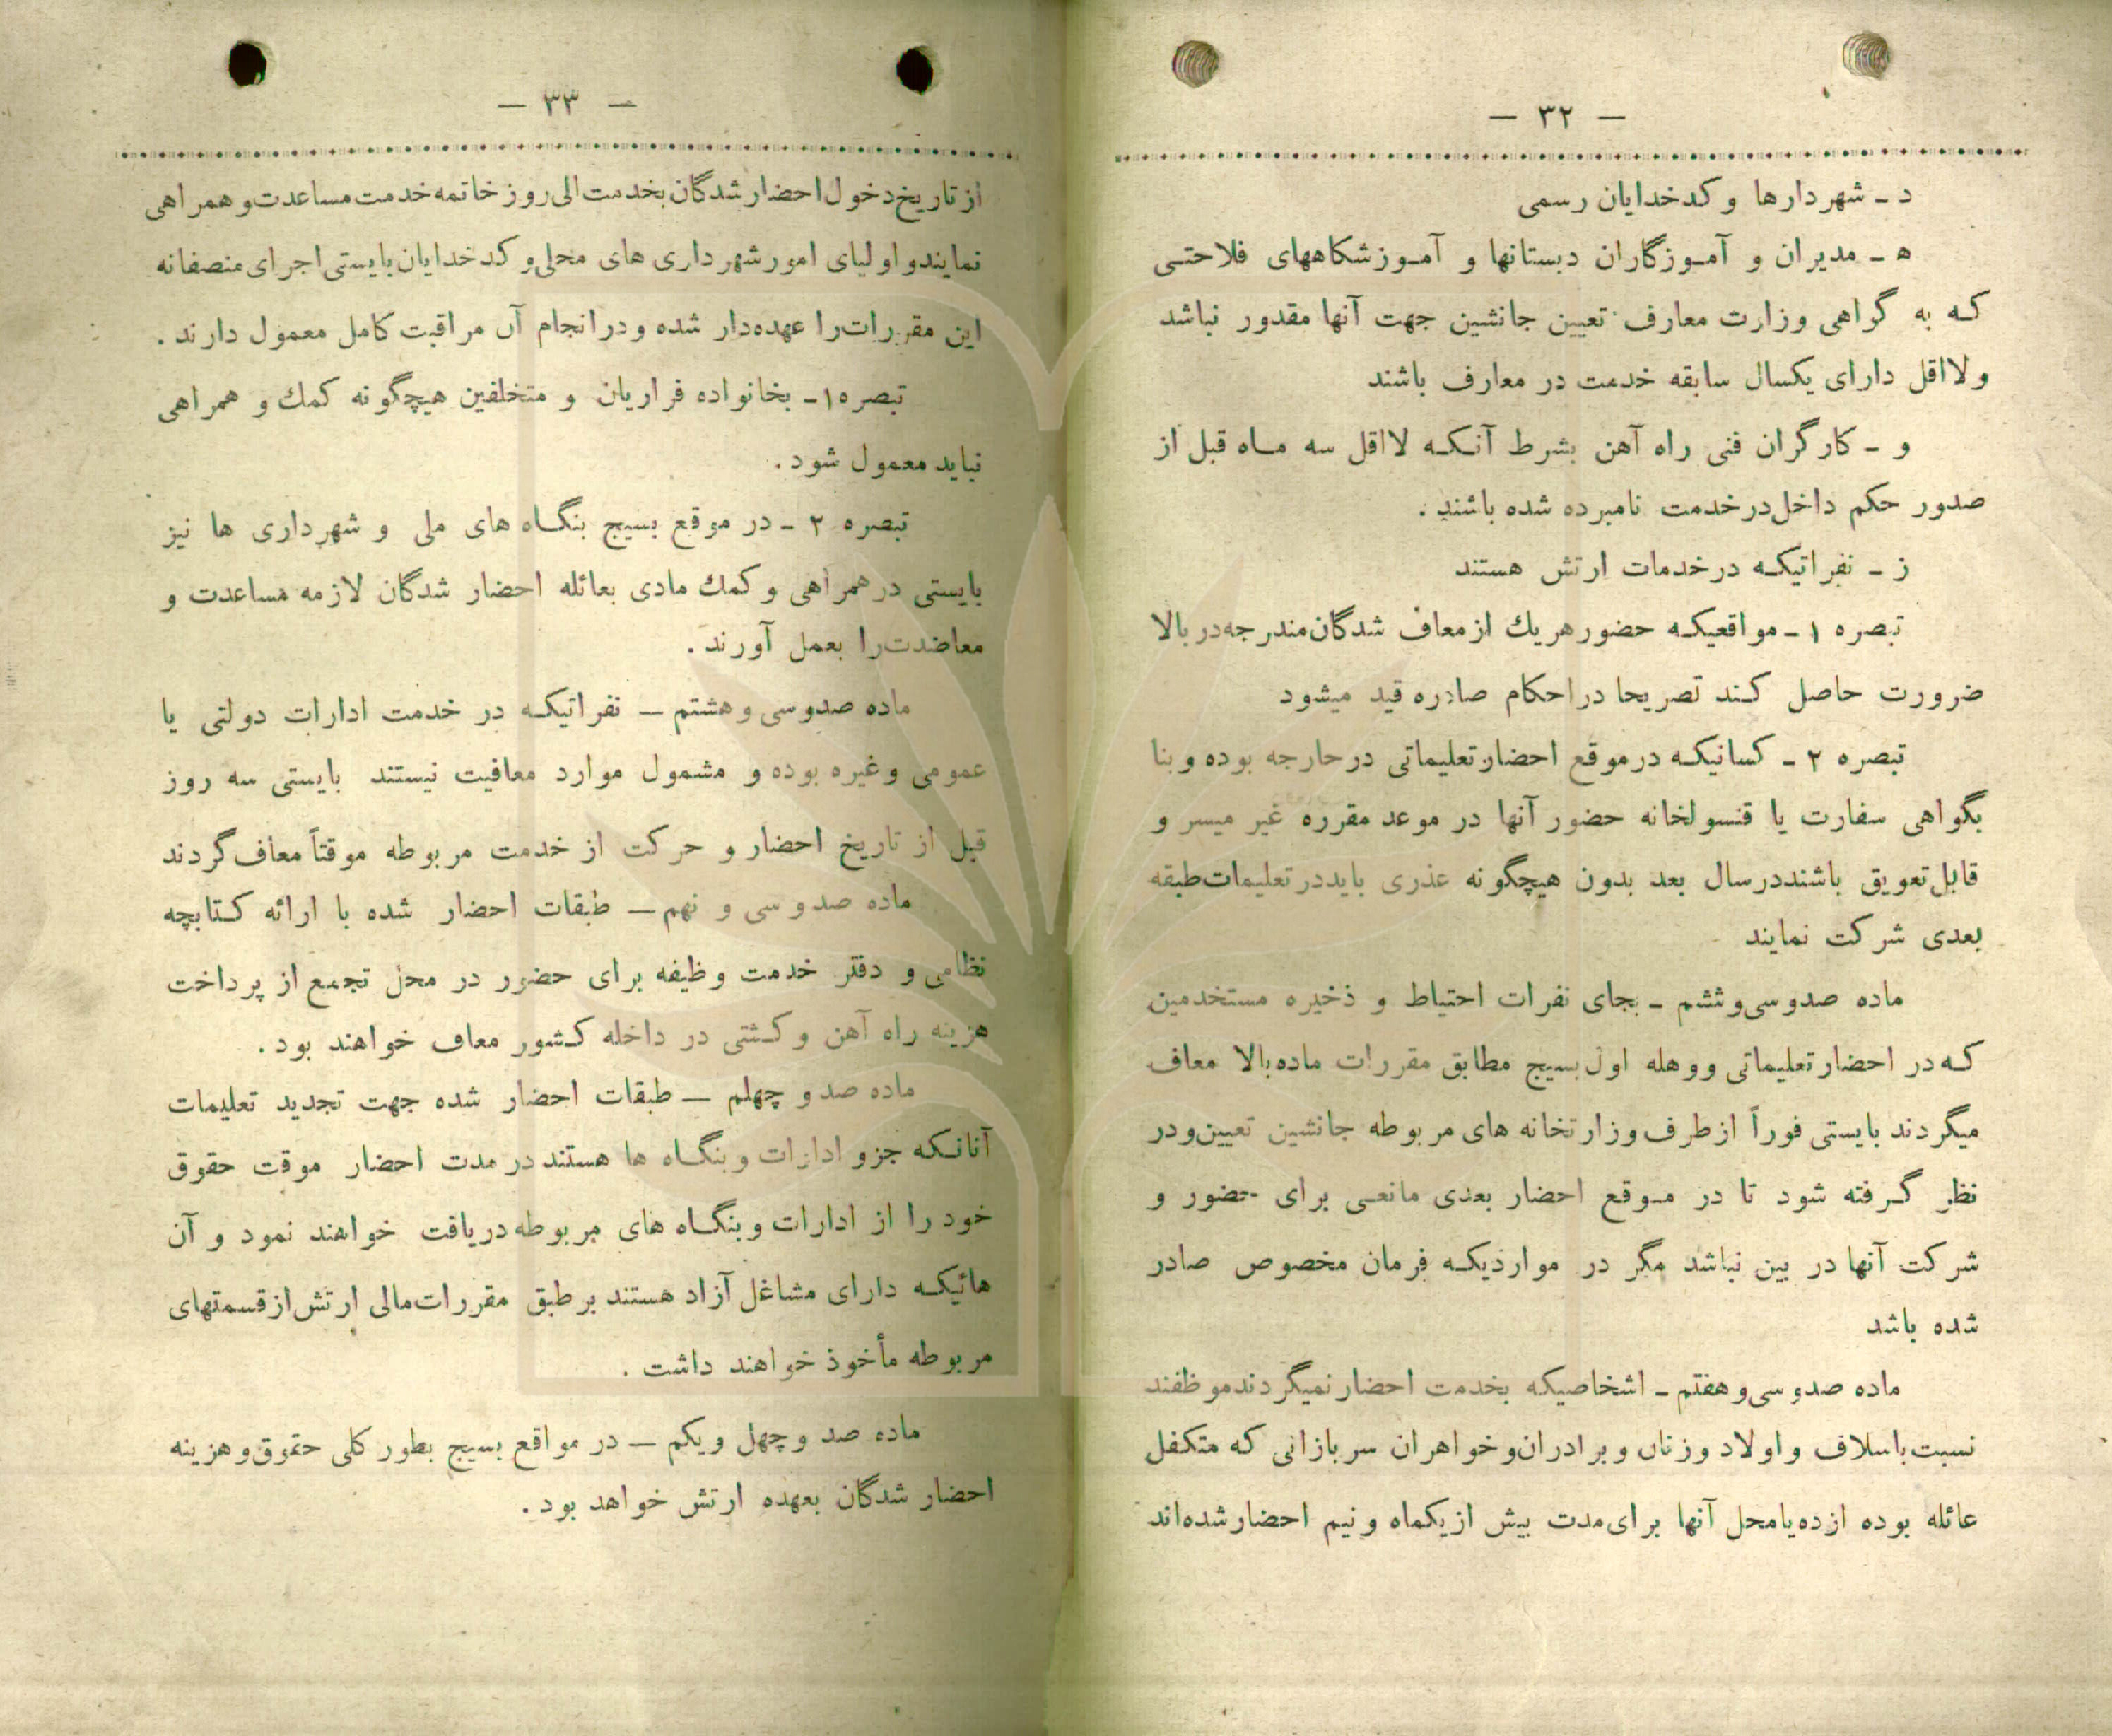 — ۳۲ —
د ـ شهردارها و کدخدایان رسمی
ه ـ مدیران و آموزگاران دبستانها و آموزشکاههای فلاحتی
که به گراهی وزارت معارف تعیین جانشین جهت آنها مقدور نباشد
ولااقل دارای یکسال سابقه خدمت در معارف باشند
و ـ کارگران فنی راه آهن بشرط آنکه لااقل سه ماه قبل از
صدور حکم داخل درخدمت نامبرده شده باشند .
ز ـ نفراتیکه درخدمات ارتش هستند
تبصره ۱ ـ مواقعیکه حضور هریك از معاف شدگان مندرجه در بالا
ضرورت حاصل کند تصریحا در احکام صادره قید میشود
تبصره ۲ ـ کسانیکه درموقع احضار تعلیماتی درخارجه بوده وبنا
بگواهی سفارت یا قنسولخانه حضور آنها در موعد مقرره غیر میسر و
قابل تعویق باشند درسال بعد بدون هیچگونه عذری باید در تعلیمات طبقه
بعدی شرکت نمایند
ماده صدوسی‌وششم ـ بجای نفرات احتیاط و ذخیره مستخدمین
که در احضار تعلیماتی ووهله اول بسیج مطابق مقررات ماده بالا معاف
میگردند بایستی فوراً از طرف وزارتخانه های مربوطه جانشین تعیین‌ودر
نظر گرفته شود تا در موقع احضار بعدی مانعی برای حضور و
شرکت آنها در بین نباشد مگر در مواردیکه فرمان مخصوص صادر
شده باشد
ماده صدوسی‌وهفتم ـ اشخاصیکه بخدمت احضار نمیگردند موظفند
نسبت باسلاف و اولاد وزنان وبرادران‌وخواهران سربازانی که متکفل
عائله بوده ازده یامحل آنها برای مدت بیش ازیکماه ونیم احضار شده‌اند
— ۳۳ —
از تاریخ دخول احضار شدگان بخدمت الی روز خاتمه خدمت مساعدت و همراهی
نمایند و اولیای امور شهرداری های محلی و کدخدایان بایستی اجرای منصفانه
این مقررات را عهده‌دار شده ودرانجام آن مراقبت کامل معمول دارند .
تبصره ۱ـ بخانواده فراریان و متخلفین هیچگونه کمك و همراهی
نباید معمول شود .
تبصره ۲ ـ در موقع بسیج بنگاه های ملی و شهرداری ها نیز
بایستی درهمراهی و کمك مادی بعائله احضار شدگان لازمه مساعدت و
معاضدت را بعمل آورند .
ماده صدوسی و هشتم — نفراتیکه در خدمت ادارات دولتی یا
عمومی وغیره بوده و مشمول موارد معافیت نیستند بایستی سه روز
قبل از تاریخ احضار و حرکت از خدمت مربوطه موقتاً معاف گردند
ماده صدو سی و نهم — طبقات احضار شده با ارائه کتابچه
نظامی و دفتر خدمت وظیفه برای حضور در محل تجمع از پرداخت
هزینه راه آهن و کشتی در داخله کشور معاف خواهند بود .
ماده صد و چهلم — طبقات احضار شده جهت تجدید تعلیمات
آنانکه جزو ادارات و بنگاه ها هستند در مدت احضار موقت حقوق
خود را از ادارات و بنگاه های مربوطه دریافت خواهند نمود و آن
هائیکه دارای مشاغل آزاد هستند برطبق مقررات مالی ارتش از قسمتهای
مربوطه مأخوذ خواهند داشت .
ماده صد و چهل ویکم — در مواقع بسیج بطور کلی حقوق و هزینه
احضار شدگان بعهده ارتش خواهد بود .